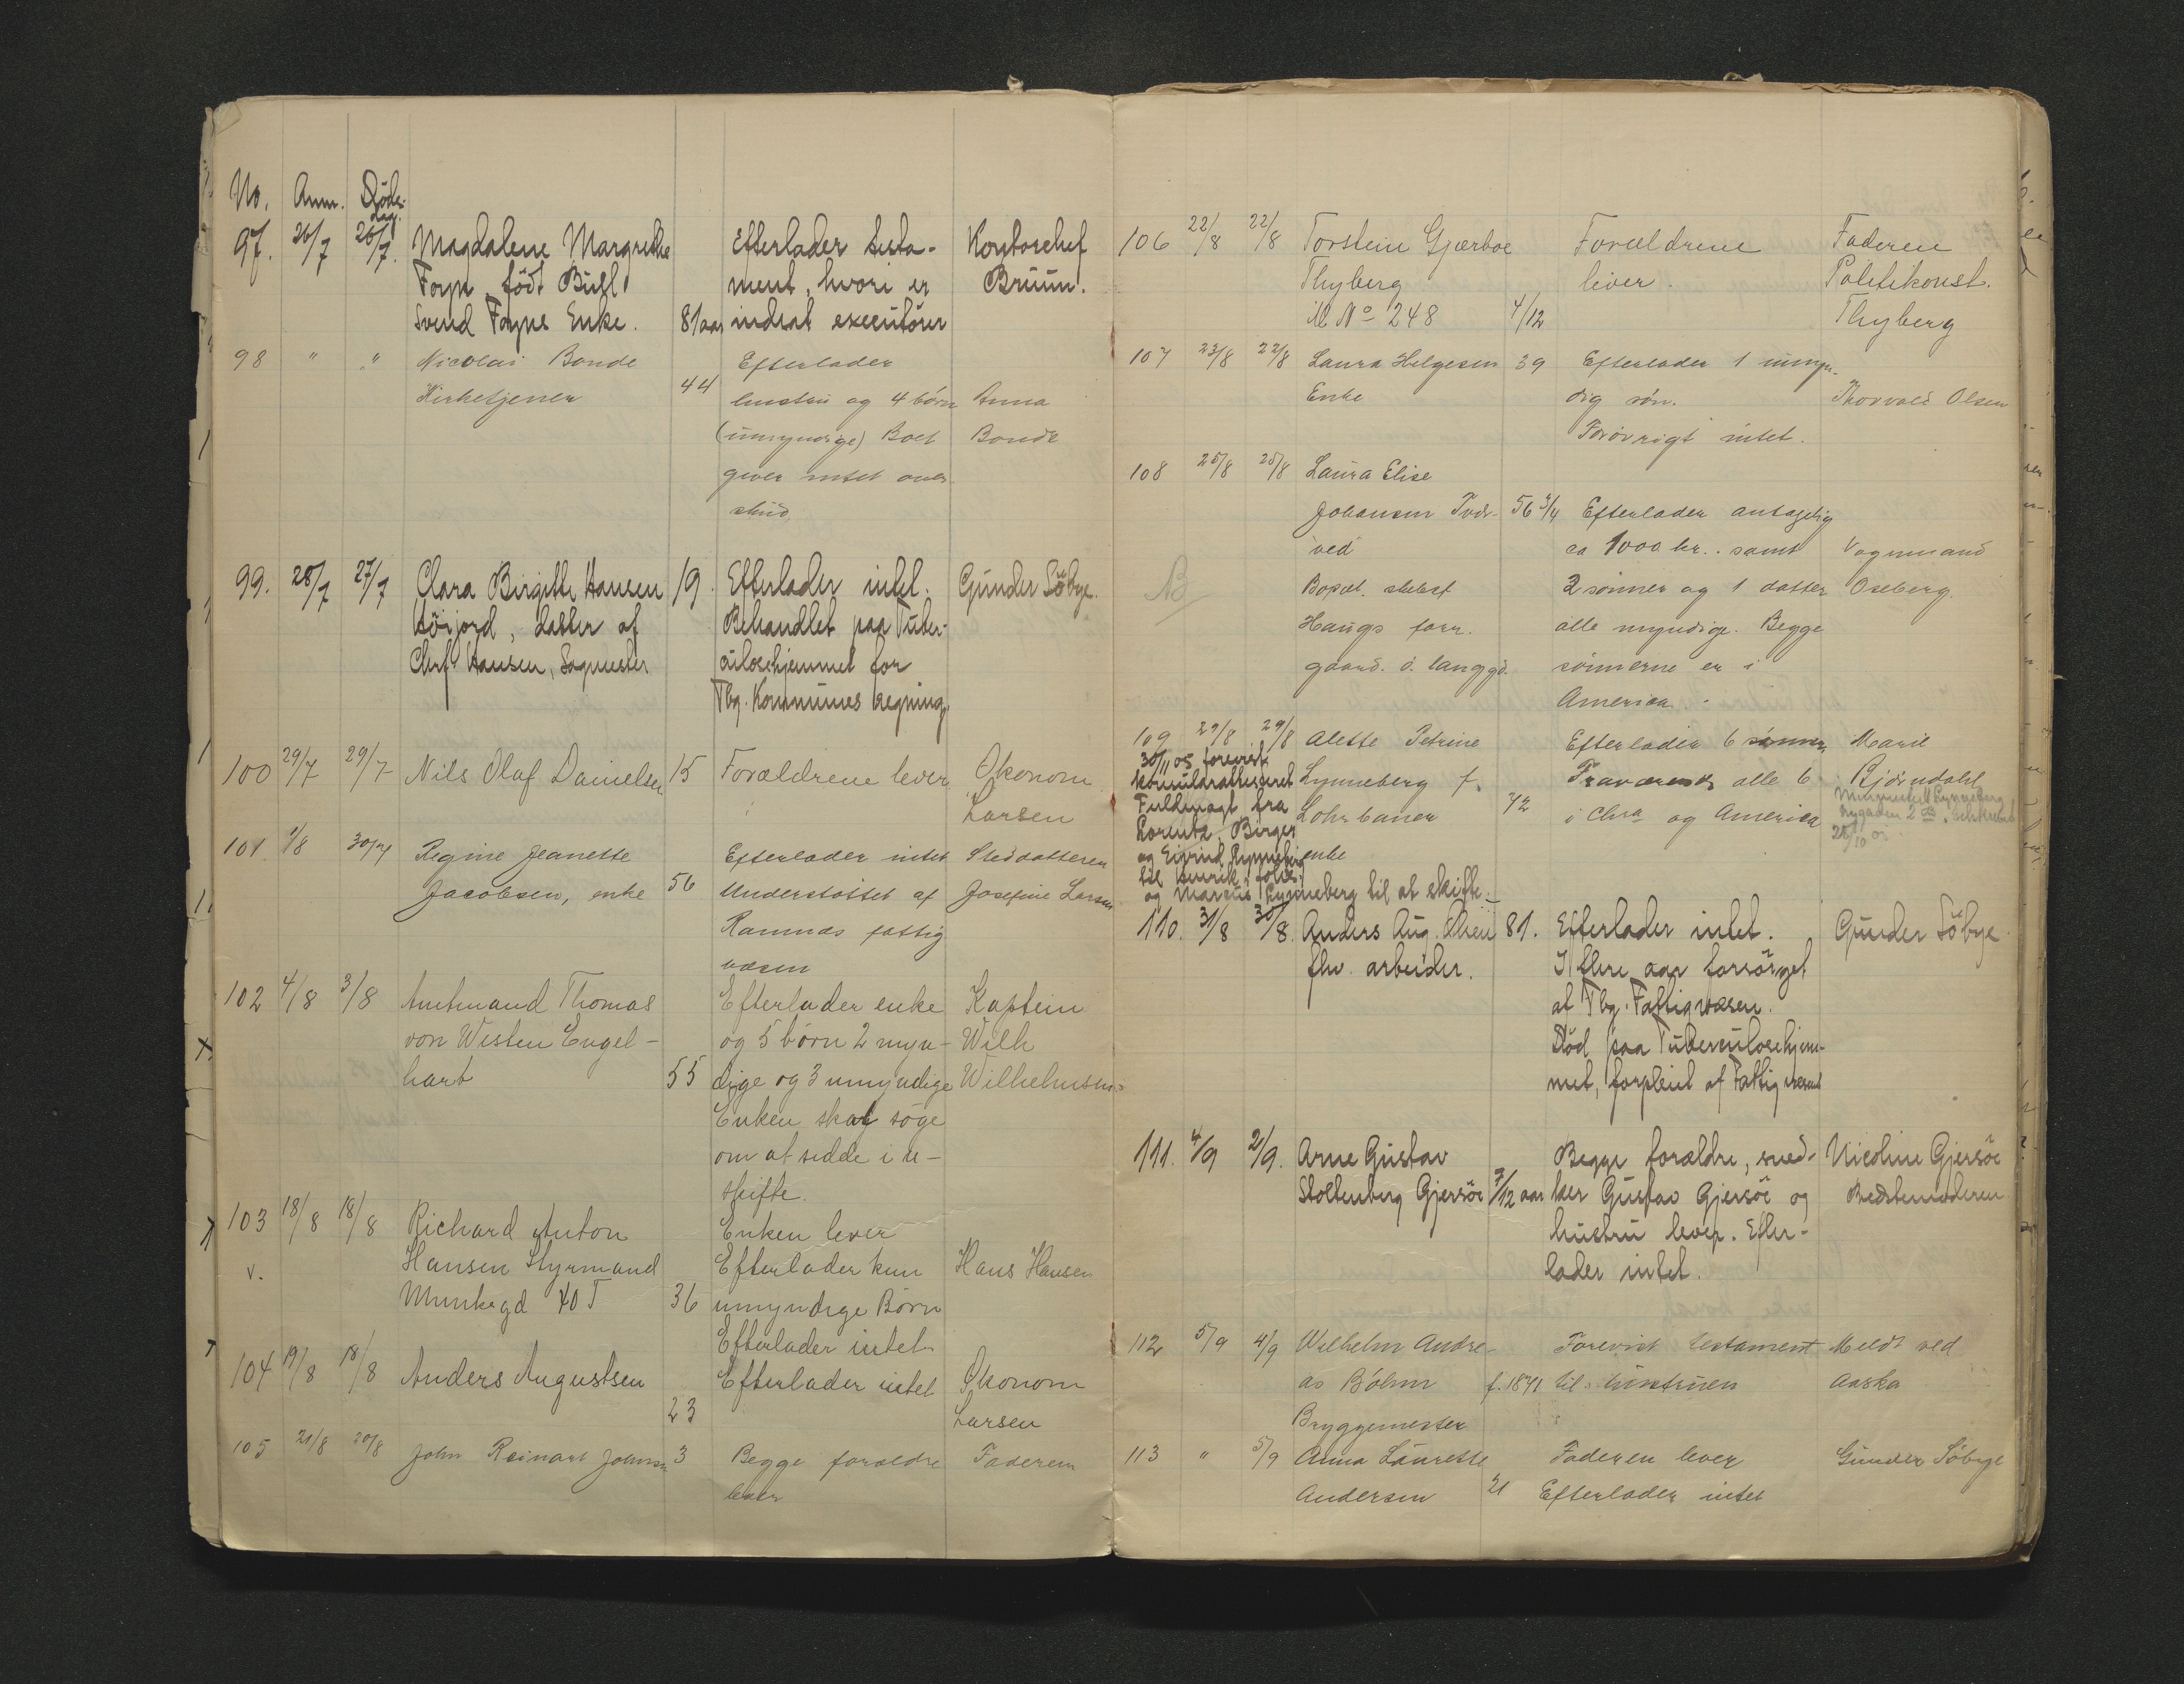 No. Anm. Döds-
dag.
97. 26/7 26/7. Magdalene Margrethe Efterlader testa- Kontorchef
Foyn, födt Bull ment, hvori er Bruun.
Svend Foyns Enke. 81 aar indsat executörer
98 " " Nicolai Bonde Efterlader
Kirketjener 44 hustru og 4 börn Anna
(umyndige) Boet Bonde
giver intet over
skud.
99. 28/7 27/7 Clara Birgitte Hansen 19. Efterlader intet. Gunder Söbye.
datter af Behandlet paa Tuber-
Chrf Hansen, Sagmester culosehjemmet for
Tbg. Kommunes regning.
100 29/7 29/7 Nils Olaf Danielsen 15 Forældrene lever Økonom
Larsen
101. 1/8 30/7 Regine Jeanette Efterlader intet Steddatteren
Jacobsen, enke 56 Understöttet af Josefine Larsen
Ramnäs fattig
væsen
102 4/8 3/8 Amtmand Thomas Efterlader enke Kaptein
von Westen Engel- og 5 börn 2 myn- Wilh
hart 55 dige og 3 umyndige Wilhelmsen
Enken skal söge
om at sidde i u-
skifte.
103 18/8 18/8 Richard Anton Enken lever
v. Hansen Styrmand Efterlader kun Hans Hansen
Munkegd 40 T 36 umyndige Börn
Efterlader intet
104 19/8 18/8 Anders Augustsen Efterlader intet Økonom
23 Larsen
105 21/8 20/8 John Reinart Johnsen 3 Begge forældre Faderen
lever
106 22/8 22/8 Torstein Gjærboe Forældrene Faderen
Thyberg lever. Politikonst.
No 248 4/12 Thyberg
107 23/8 22/8 Laura Helgesen 39 Efterlader 1 umyn-
Enke dig sön. Thorvald Olsen
Forövrigt intet.
108 25/8 25/8 Laura Elise
Johansen 56 3/4 Efterlader antagelig
ved ca 1000 kr.. samt Vognmand
NB Bopæl. 2 sönner og 1 datter Oseberg.
Haugs forr. alle myndige. Begge
gaard. ö. langgd. sönnerne er i
America.
109 29/8 29/8 Alette Petrine Efterlader 6 sönner Marie
30/11 05 forevist
konsularattesteret Lynneberg f. Fraværende alle 6 Björndahl
Fuldmagt fra Lohrbauer 72 i Chra og America
Lorentz, Birger enke
og Eivind Lynneberg
til Henrik,
og Marcus Lynneberg til at skifte.
110. 31/8 30/8. Anders Aug. Olsen 81. Efterlader intet. Gunder Söbye.
fhv. arbeider. I flere aar forsörget
af Tbg. Fattigvæsen.
Död paa Tuberculosehjem-
met, forpleiet af Fattigvæsenet
111. 4/9 2/9. Arne Gustav Begge forældre, sned- Nicoline Gjersöe
Stoltenberg Gjersöe 7/12 aar ker Gustav Gjersöe og Bedstemoderen
hustru lever. Efter-
lader intet.
112 5/9 4/9 Wilhelm Andre- Forevist testament Meldt ved
as Böhm f. 1841 til hustruen Aaska
Bryggemester
113 " 5/9 Anna Laurette Faderen lever Gunder Söbye
Andersen 21 Efterlader intet